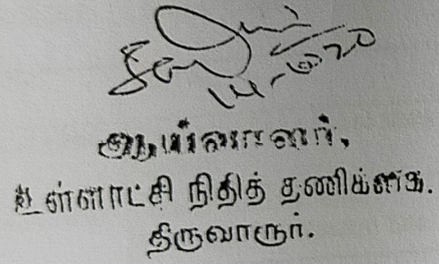 ஆய்வாளர்,
உள்ளாட்சி நிதித் தணிக்கை.
திருவாரூர்.